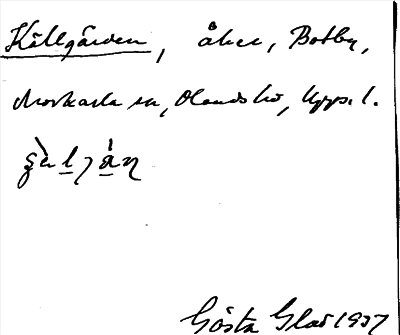 Källgården, åker, Botby,
Morkarla sn, Olands hd, Upps. l.
Gösta Glad 1937